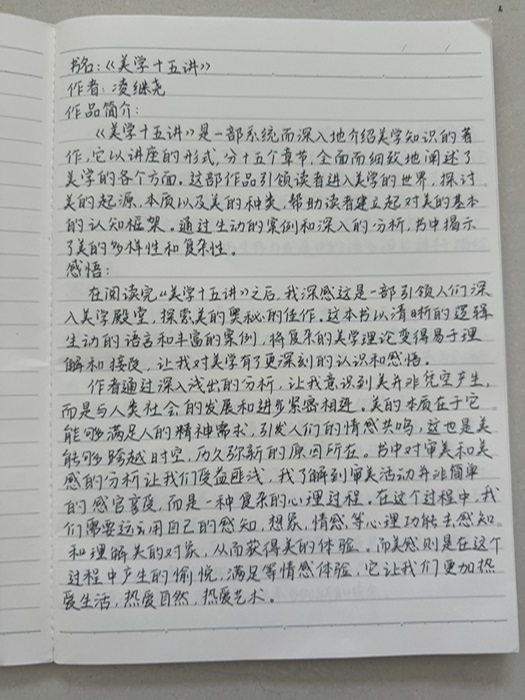 书名:《美学十五讲》
作者:凌继尧
作品简介:
《美学十五讲》是一部系统而深入地介绍美学知识的著
作,它以讲座的形式,分十五个章节,全面而细致地阐述了
美学的各个方面。这部作品引领读者进入美学的世界,探讨
美的起源、本质以及美的种类,帮助读者建立起对美的基本
的认知框架。通过生动的案例和深入的分析,书中揭示
了美的多样性和复杂性。
感悟:
在阅读完《美学十五讲》之后,我深感这是一部引领人们深
入美学殿堂,探索美的奥秘的佳作。这本书以清晰的逻辑
生动的语言和丰富的案例,将复杂的美学理论变得易于理
解和接受,让我对美学有了更深刻的认识和感悟。
作者通过深入浅出的分析,让我意识到美并非凭空产生,
而是与人类社会的发展和进步紧密相连。美的本质在于它
能够满足人的精神需求,引发人们的情感共鸣,这也是美
能够跨越时空,历久弥新的原因所在。书中对审美和美
感的分析让我们受益匪浅,我了解到审美活动并非简单
的感官享受,而是一种复杂的心理过程。在这个过程中,我
们需要运用自己的感知,想象,情感,等心理功能去感知
和理解美的对象,从而获得美的体验。而美感则是在这个
过程中产生的愉悦,满足等情感体验,它让我们更加热
爱生活,热爱自然,热爱艺术。